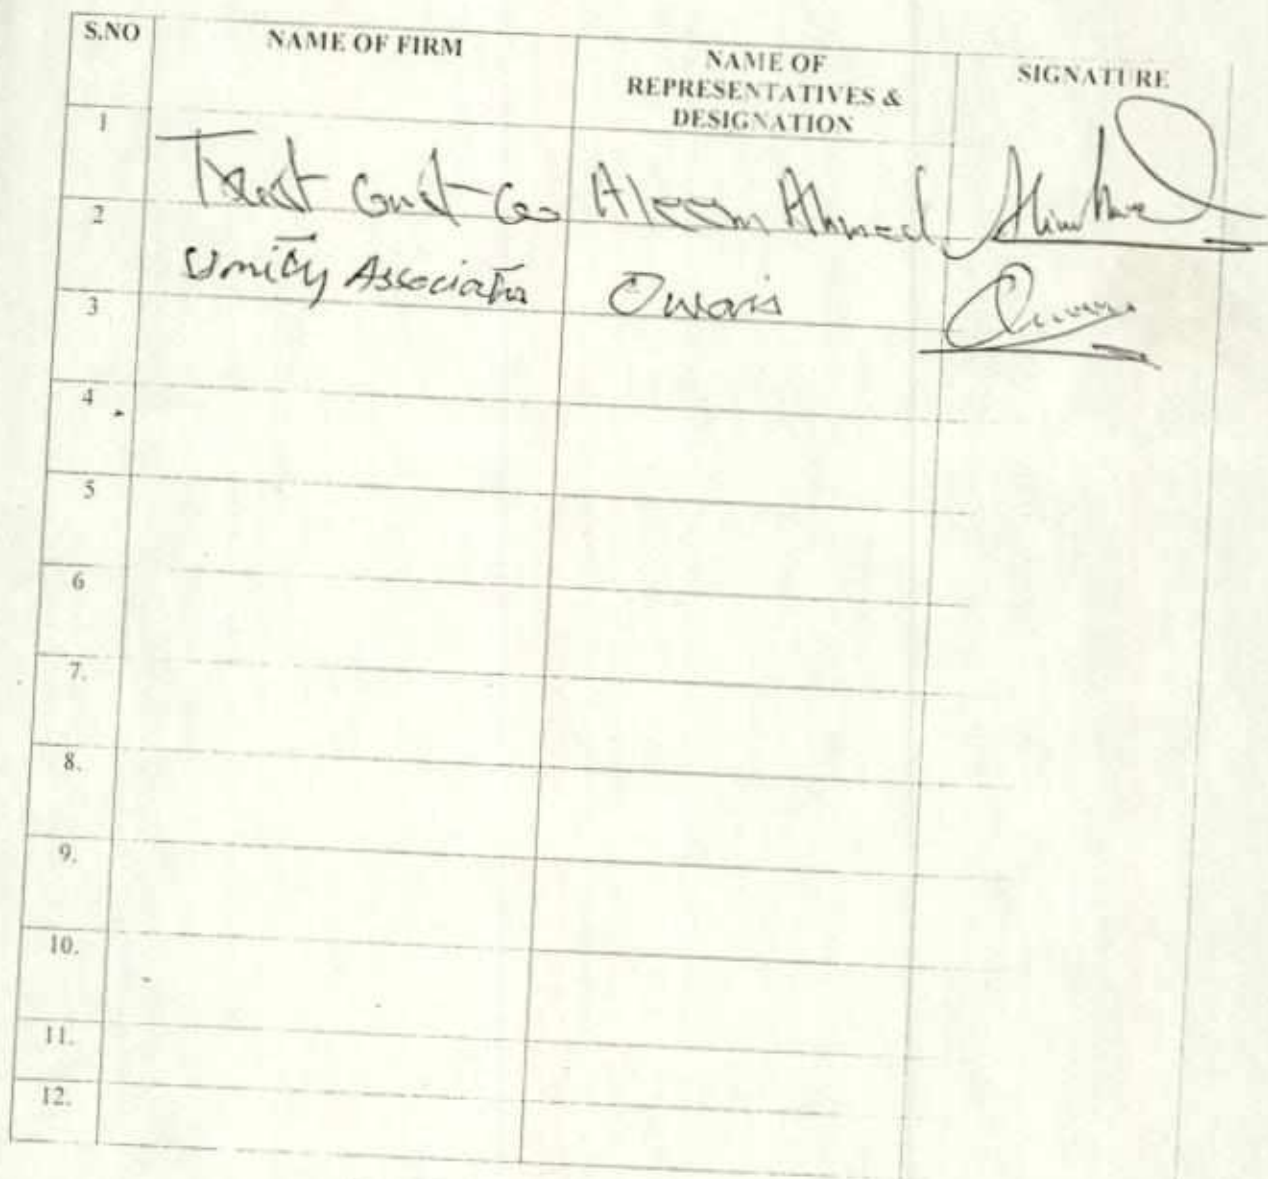 S.NO NAME OF FIRM NAME OF REPRESENTATIVES & DESIGNATION SIGNATURE
1 Aleem Ahmed
2 Unity Owais
3
4
5
6
7.
8.
9.
10.
11.
12.